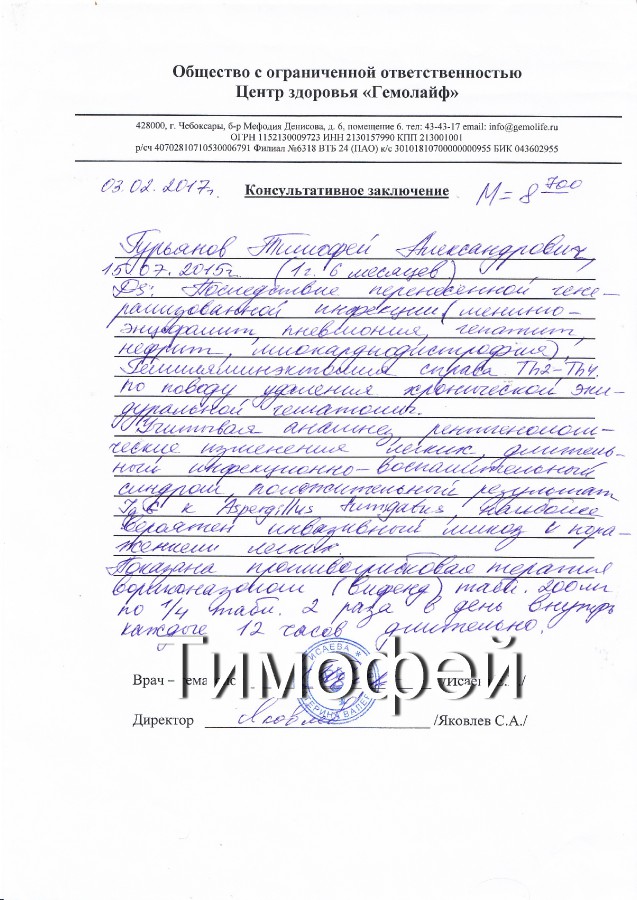 Общество с ограниченной ответственностью
Центр здоровья «Гемолайф»
428000, г. Чебоксары, б-р Мефодия Денисова, д. 6, помещение 6. тел: 43-43-17 email: info@gemolife.ru
ОГРН 1152130009723 ИНН 2130157990 КПП 213001001
р/сч 40702810710530006791 Филиал №6318 ВТБ 24 (ПАО) к/с 30101810700000000955 БИК 043602955
03.02.2017г. Консультативное заключение М = 8 700
Гурьянов Тимофей Александрович,
15.07.2015г. (1г. 6 месяцев)
Ds: Последствие перенесенной гене-
рализованной инфекции (менинго-
энцефалит, пневмония, гепатит,
нефрит, миокардиодистрофия).
Гемиляминэктомия справа Th2-Th4.
по поводу удаления хронической эпи-
дуральной гематомы.
Учитывая анамнез, рентгенологи-
ческие изменения легких, длитель-
ный инфекционно-воспалительный
синдром, положительный результат
IgG к Aspergillus fumigatus, наиболее
вероятен инвазивный микоз с пора-
жением легких.
Показана противогрибковая терапия
вориконазолом (вифенд) табл. 200мг
по 1/4 табл. 2 раза в день внутрь
каждые 12 часов длительно.
Тимофей
Врач –
ИСАЕВА
Директор Яковлев /Яковлев С.А./